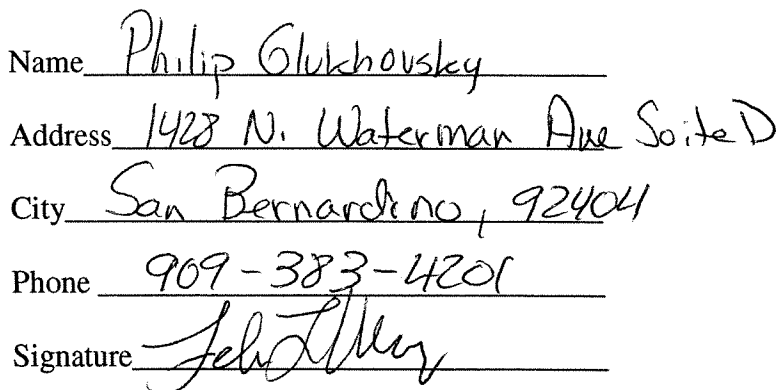 Name Philip Glukhovsky
Address 1428 N. Waterman Ave Suite D
City San Bernardino, 92404
Phone 909-383-4201
Signature